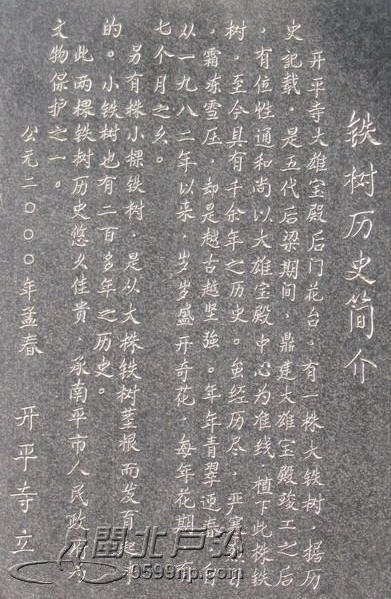 铁树历史简介
开平寺大雄宝殿后门花台，有一株大铁树，据历
史记载，是五代后梁期间，鼎建大雄宝殿竣工之后
，有位性通和尚以大雄宝殿中心为准线，植下此株铁
树，至今具有千余年之历史。虽经历尽，严寒
，霜冻雪压，却是越古越坚强。年年青翠迎春，自
从一九八二年以来，岁岁盛开奇花，每年花期
七个月之久。
另有株小棵铁树，是从大株铁树茎根而发育起
的。小铁树也有二百多年之历史。
此两棵铁树历史悠久佳贵，承南平市人民政府
文物保护之一。
公元二〇〇〇年孟春
开平寺立
闽北户外
0599hp.net